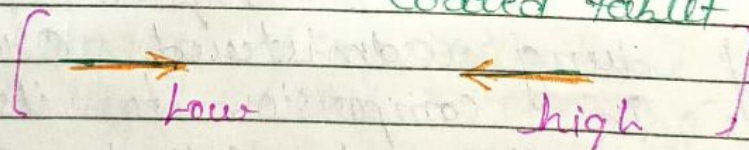 coated tablet
Low high